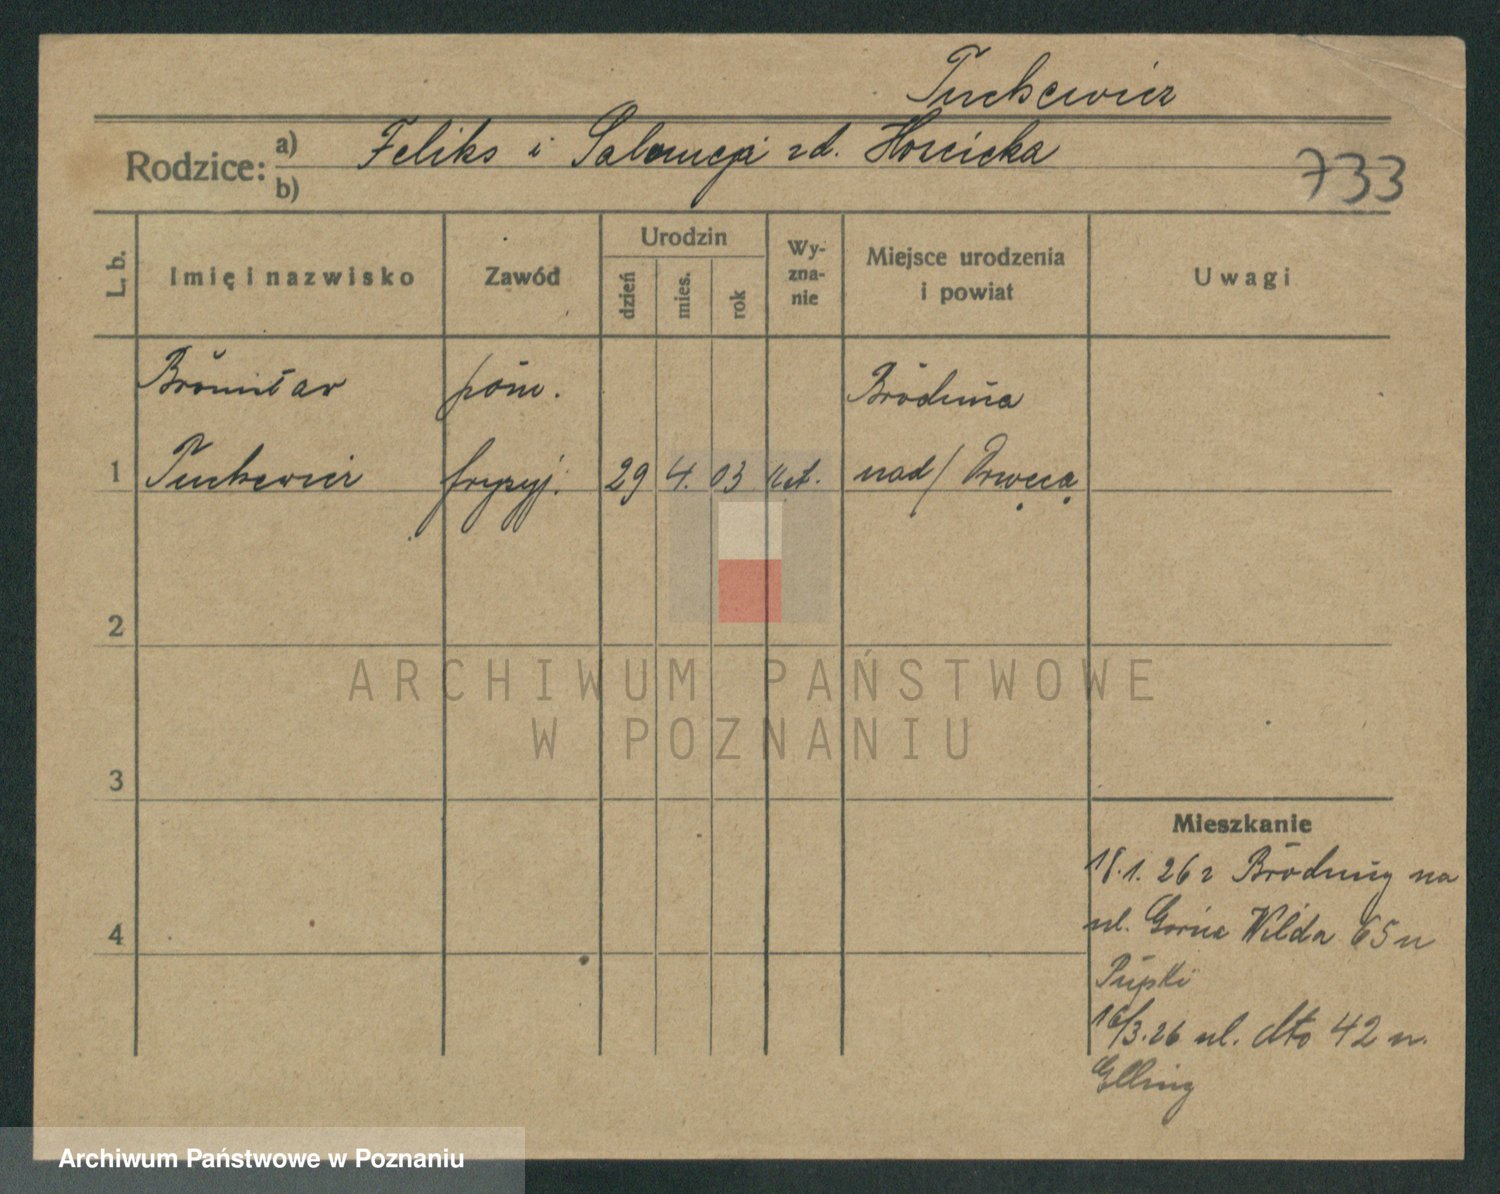 Tuchewicz
Rodzice: a) Feliks i Salomeja zd. Hoscicka
b)
733
L. b.
Imię i nazwisko
Zawód
Urodzin
dzień
mies.
rok
Wy-
zna-
nie
Miejsce urodzenia
i powiat
Uwagi
Bronisław
pom.
Brodnica
1
Tuchewicz
fryzyj.
29
4.
03
kat.
nad/ Drwęcą
2
3
4
Mieszkanie
18.1. 26 z Brodnicy na
ul. Górna Wilda 65 u
Pupki
16/3.26 ul. dto 42 u.
Elling
ARCHIWUM PAŃSTWOWE
W POZNANIU
Archiwum Państwowe w Poznaniu